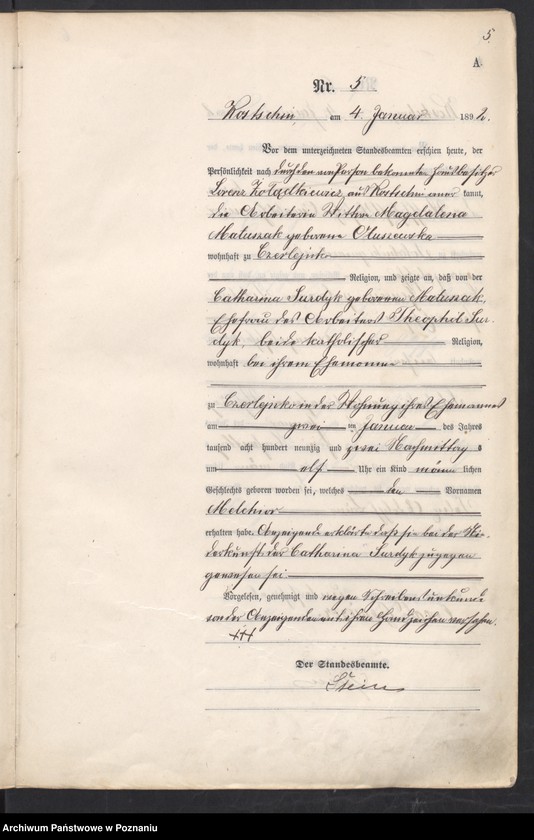 5.
A.
Nr. 5
Kostschin am 4. Januar 1892.
Vor dem unterzeichneten Standesbeamten erschien heute, der
Persönlichkeit nach durch den von Person bekannten Hausbesitzer
Lorenz aus Kostschin anerkannt,
die Arbeiterin Wittwe Magdalena
Matuszak geborene Oluszewska
wohnhaft zu Czerlejnko
Religion, und zeigte an, daß von der
Catharina Surdyk geborenen Matuszak,
Ehefrau des Arbeiters Theophil Sur-
dyk, beide katholischer Religion,
wohnhaft bei ihrem Ehemanne
zu Czerlejnko in der Wohnung ihres Ehemannes
am zwei ten Januar des Jahres
tausend acht hundert neunzig und zwei Nachmittags
um elf Uhr ein Kind männlichen
Geschlechts geboren worden sei, welches den Vornamen
Melchior
erhalten habe. Anzeigende erklärte daß sie bei der Nie-
derkunft der Catharina Surdyk zugegen
gewesen sei
Vorgelesen, genehmigt und wegen Schreibensunkunde
von der Anzeigenden mit ihrem Handzeichen versehen.
+++
Der Standesbeamte.
Stein
Archiwum Państwowe w Poznaniu